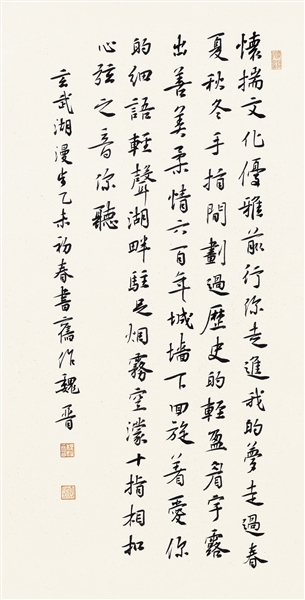 懷揣文化優雅前行你走進我的夢走過春
夏秋冬手指間劃過歷史的輕盈眉宇露
出善美柔情六百年城墻下回旋着愛你
的細語輕聲湖畔駐足烟霧空濛十指相扣
心弦之音你聽
玄武湖漫步乙未初春書舊作魏晋